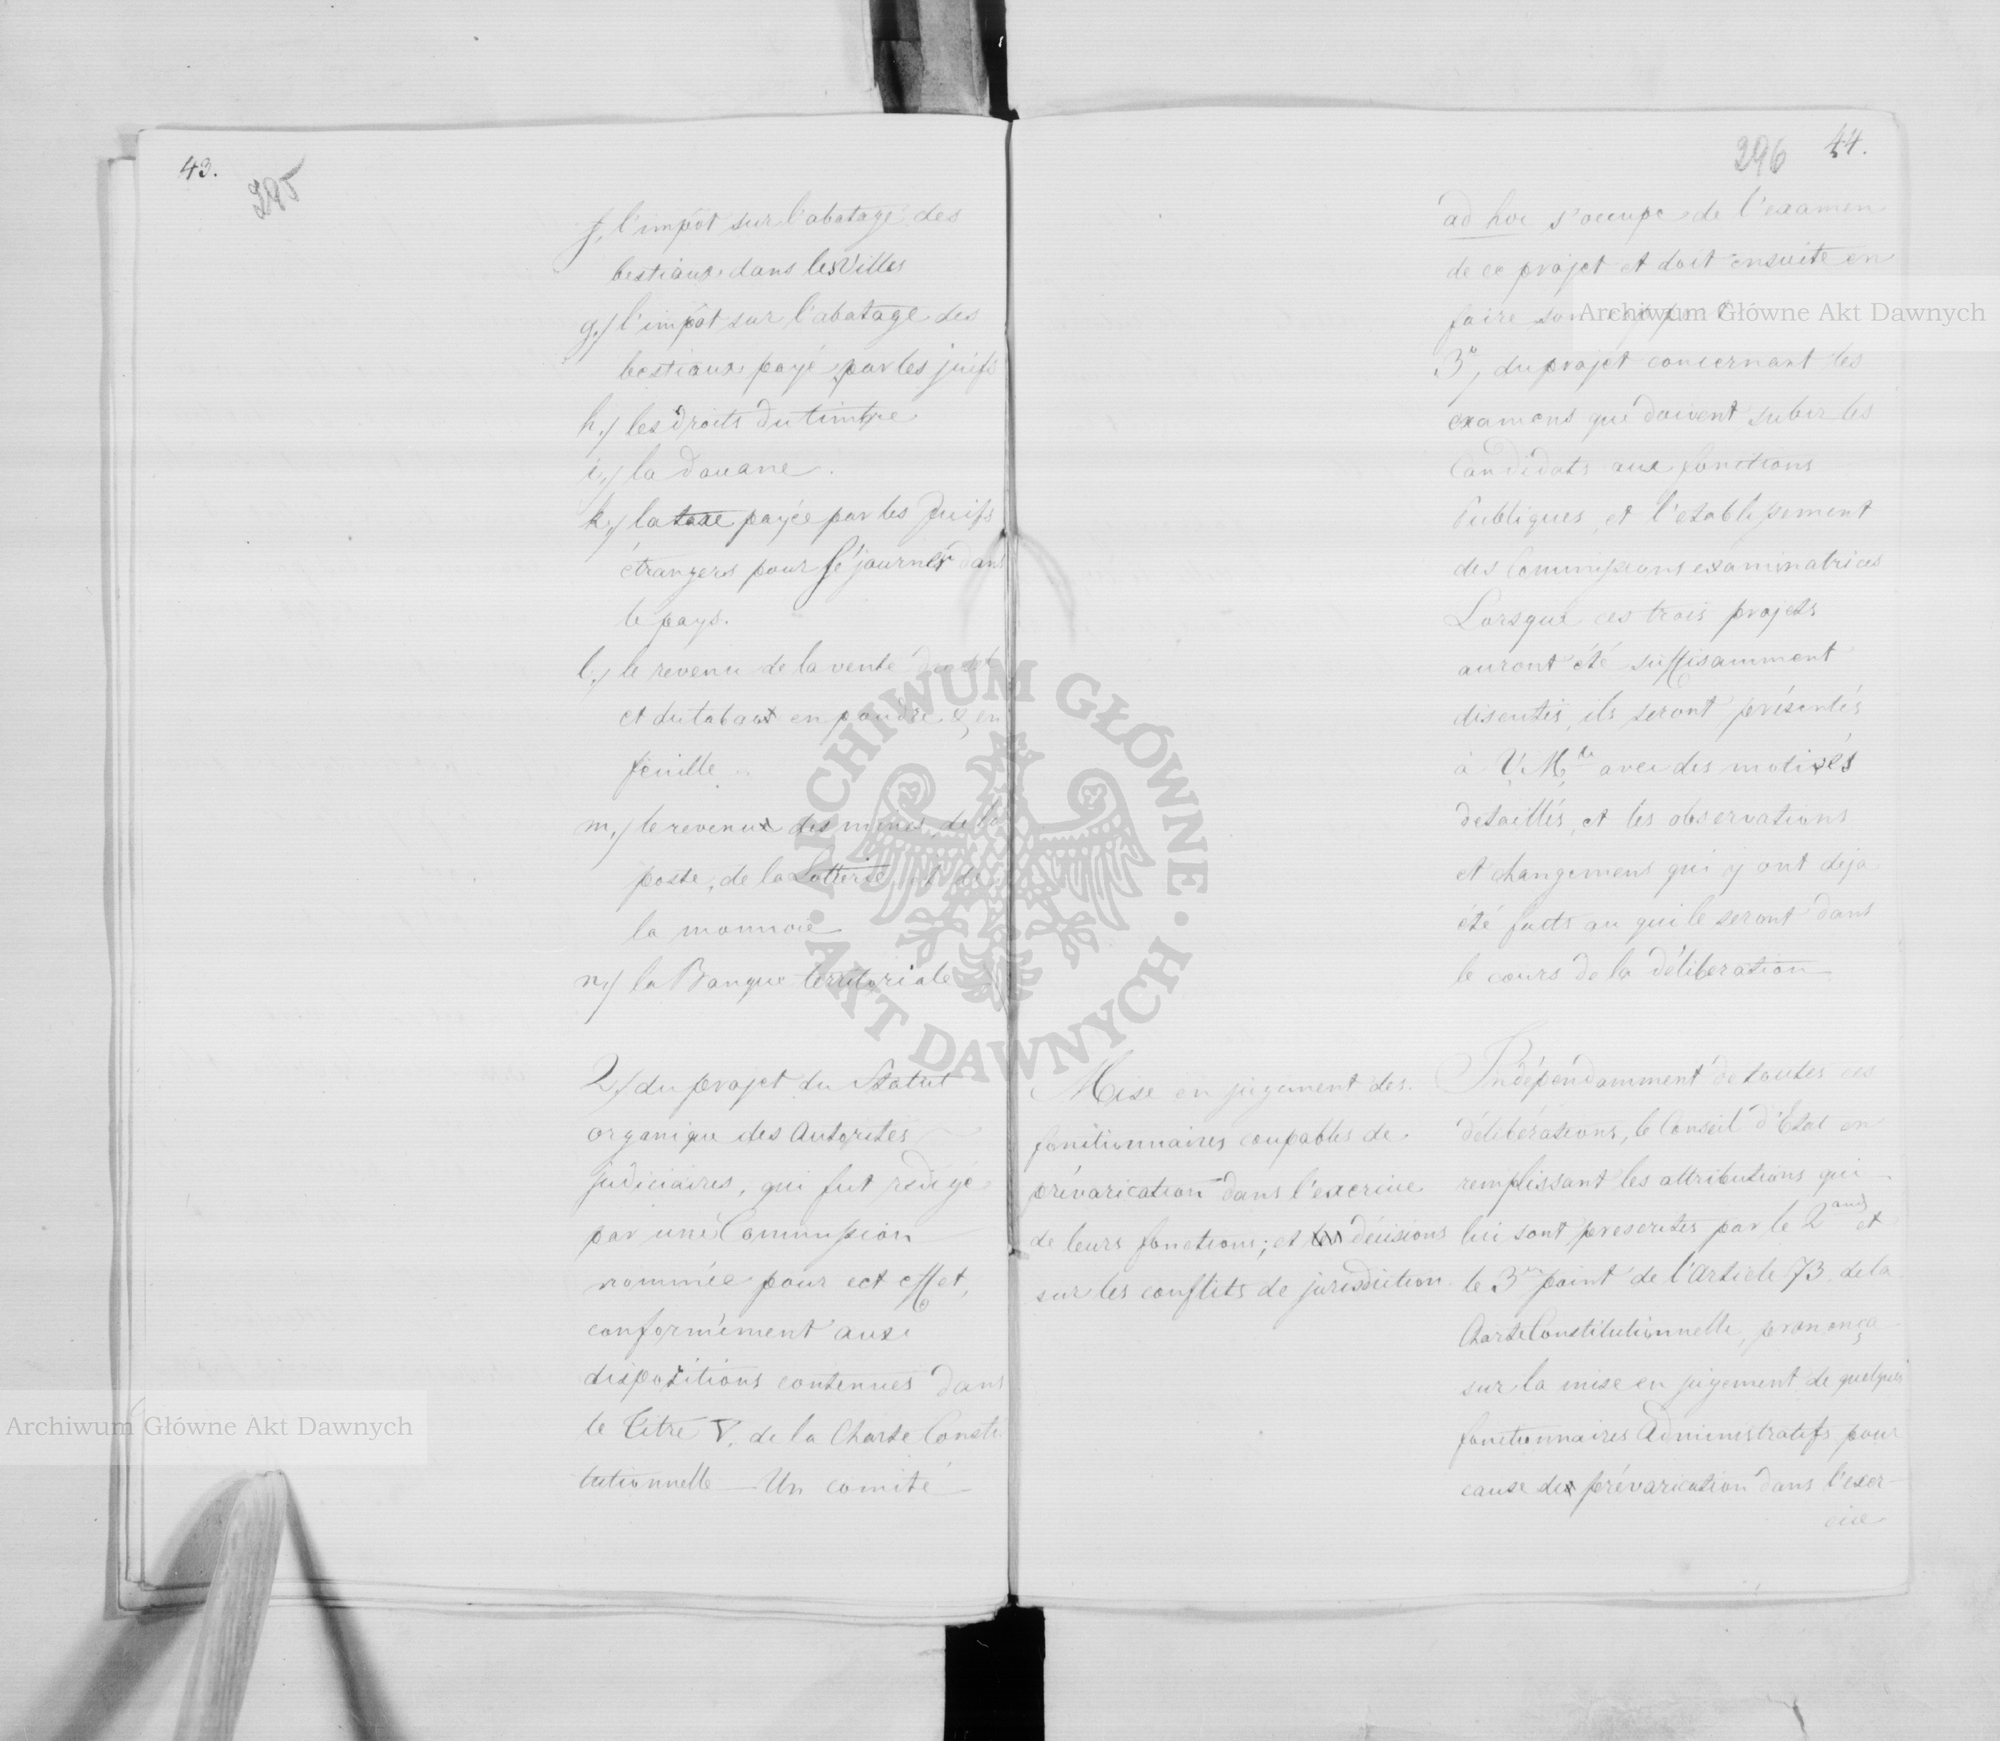 43.
295
f,/ l'impôt sur l'abatage des
bestiaux dans les Villes
g,/ l'impôt sur l'abatage des
bestiaux payé par les juifs
h,/ les droits du timbre
i,/ la Douane.
k,/ la taxe payée par les Juifs
étrangers pour séjourner dans
le pays.
l,/ le revenu de la vente du sel
et du tabac en poudre & en
feuille
m,/ le revenu des mines, de la
poste, de la Lotterie et de
la monnoie
n,/ la Banque territoriale
2,/ du projet du Statut
organique des Autorités
judiciaires, qui fut redigé
par une Commission
nommée pour cet effet,
conformément aux
dispositions contenues dans
le Titre V. de la Charte Consti
tutionnelle – Un comité
296 44.
ad hoc s'occupe de l'examen
de ce projet et doit ensuite en
faire son rapport
3°, du projet concernant les
examens que doivent subir les
Candidats aux fonctions
Publiques, et l'etablissement
des Commissions examinatrices
Lorsque ces trois projets
auront été suffisamment
discutés, ils seront présentés
à V. M.té avec des motives
detaillés, et les observations
et changemens qui y ont deja
été faits ou qui le seront dans
le cours de la délibération
Mise en jugement des
fonctionnaires coupables de
prévarication dans l'exercice
de leurs fonctions; et décisions
sur les conflits de jurisdiction.
Indépendamment de toutes ces
délibérations, le Conseil d'Etat en
remplissant les attributions qui
lui sont prescrites par le 2 et
le 3 point de l'Article 73. de la
Charte Constitutionnelle, prononça
sur la mise en jugement de quelques
fonctionnaires Administratifs pour
cause de prévarication dans l'exer-
cice
Archiwum Główne Akt Dawnych
Archiwum Główne Akt Dawnych
ARCHIWUM GŁÓWNE · AKT DAWNYCH ·